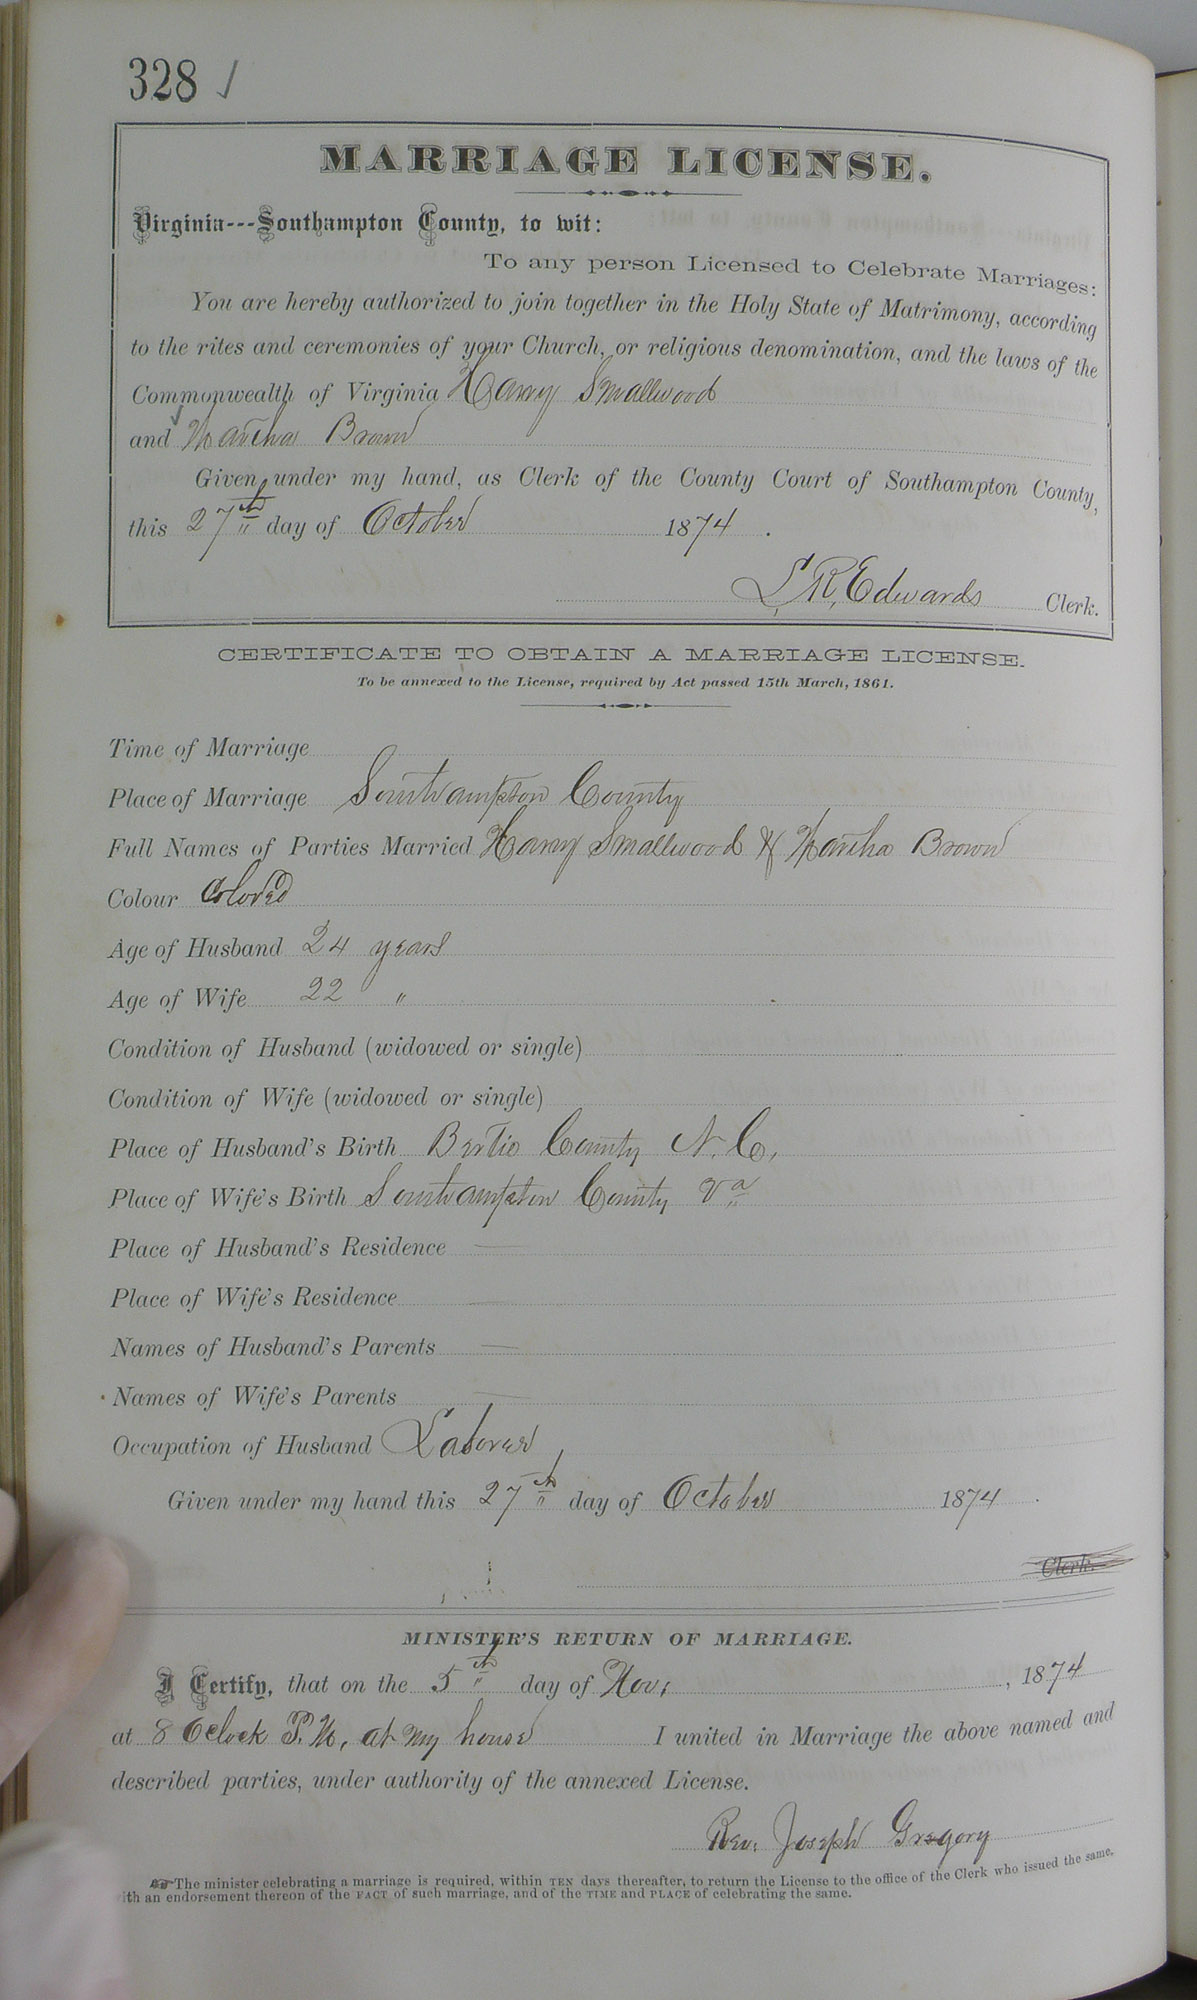 328 ✓
MARRIAGE LICENSE.
Virginia---Southampton County, to wit:
To any person Licensed to Celebrate Marriages:
You are hereby authorized to join together in the Holy State of Matrimony, according
to the rites and ceremonies of your Church, or religious denomination, and the laws of the
Commonwealth of Virginia Harry Smallwood
and Martha Brown
Given under my hand, as Clerk of the County Court of Southampton County,
this 27th day of October 1874.
L. R. Edwards Clerk.
CERTIFICATE TO OBTAIN A MARRIAGE LICENSE.
To be annexed to the License, required by Act passed 15th March, 1861.
Time of Marriage
Place of Marriage Southampton County
Full Names of Parties Married Harry Smallwood & Martha Brown
Colour Colored
Age of Husband 24 years
Age of Wife 22 "
Condition of Husband (widowed or single)
Condition of Wife (widowed or single)
Place of Husband's Birth Bertie County N. C.
Place of Wife's Birth Southampton County Va
Place of Husband's Residence —
Place of Wife's Residence —
Names of Husband's Parents —
Names of Wife's Parents —
Occupation of Husband Laborer
Given under my hand this 27th day of October 1874.
Clerk.
MINISTER'S RETURN OF MARRIAGE.
I Certify, that on the 5th day of Nov. , 1874
at 8 Oclock P.M, at my house I united in Marriage the above named and
described parties, under authority of the annexed License.
Rev. Joseph Gregory
☞ The minister celebrating a marriage is required, within TEN days thereafter, to return the License to the office of the Clerk who issued the same,
with an endorsement thereon of the FACT of such marriage, and of the TIME and PLACE of celebrating the same.